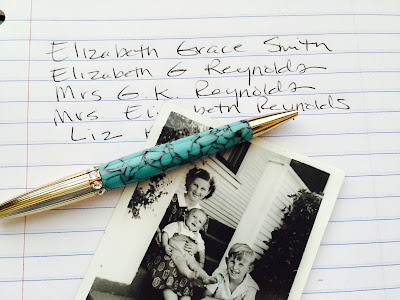 Elizabeth Grace Smith
Elizabeth G Reynolds
Mrs G K. Reynolds
Mrs Reynolds
Liz